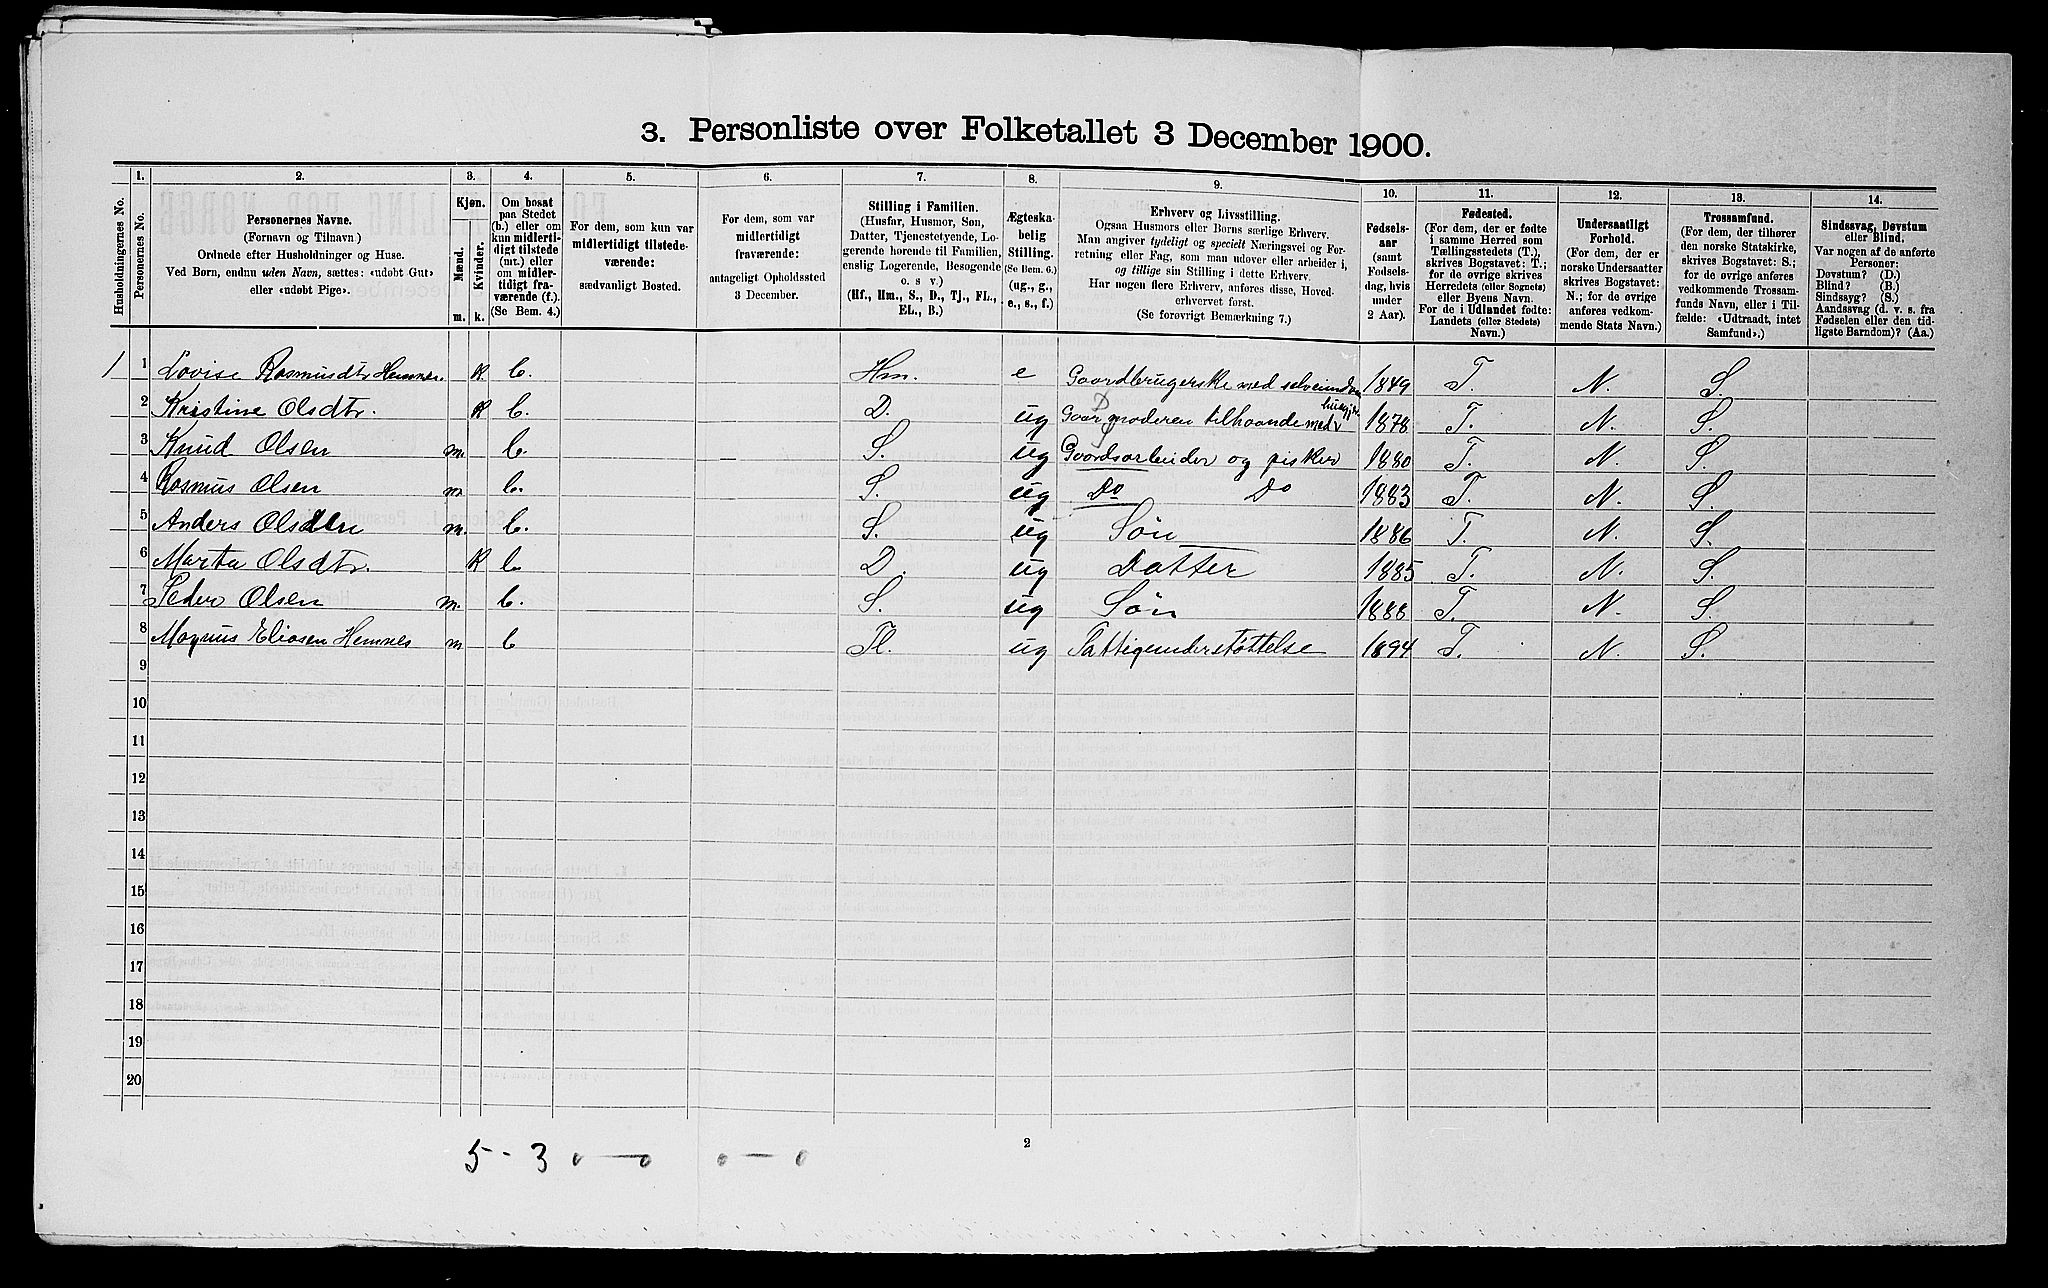 3. Personliste over Folketallet 3 December 1900.
1. 2. 3. 4. 5. 6. 7. 8. 9. 10. 11. 12. 13. 14.
Husholdningernes No.
Personernes No.
Personernes Navne.
(Fornavn og Tilnavn)
Ordnede efter Husholdninger og Huse.
Ved Børn, endnu uden Navn, sættes: «udøbt Gut»
eller «udøbt Pige».
Kjøn.
Mænd.
Kvinder.
m. k.
Om bosat
paa Stedet
(b.) eller om
kun midlerti-
digt tilstede
(mt.) eller
om midler-
tidigt fra-
værende (f.).
(Se Bem. 4.)
For dem, som kun var
midlertidigt tilstede-
værende:
sædvanligt Bosted.
For dem, som var
midlertidigt
fraværende:
antageligt Opholdssted
3 December.
Stilling i Familien.
(Husfar, Husmor, Søn,
Datter, Tjenestetyende, Lo-
gerende hørende til Familien,
enslig Logerende, Besøgende
o. s v.)
(Hf., Hm., S., D., Tj., FL.,
EL., B.)
Ægteska-
belig
Stilling.
(Se Bem. 6.)
(ug., g.,
e., s., f.)
Erhverv og Livsstilling.
Ogsaa Husmors eller Børns særlige Erhverv.
Man angiver tydeligt og specielt Næringsvei og For-
retning eller Fag, som man udøver eller arbeider i,
og tillige sin Stilling i dette Erhverv.
Har nogen flere Erhverv, anføres disse, Hoved-
erhvervet først.
(Se forøvrigt Bemærkning 7.)
Fødsels-
aar
(samt
Fødsels-
dag, hvis
under
2 Aar).
Fødested.
(For dem, der er fødte
i samme Herred som
Tællingsstedets (T.),
skrives Bogstavet: T.;
for de øvrige skrives
Herredets (eller Sognets)
eller Byens Navn.
For de i Udlandet fødte:
Landets (eller Stedets)
Navn.)
Undersaatligt
Forhold.
(For dem, der er
norske Undersaatter
skrives Bogstavet:
N.; for de øvrige
anføres vedkom-
mende Stats Navn.)
Trossamfund.
(For dem, der tilhører
den norske Statskirke,
skrives Bogstavet: S.;
for de øvrige anføres
vedkommende Trossam-
funds Navn, eller i Til-
fælde: «Udtraadt, intet
Samfund».)
Sindssvag, Døvstum
eller Blind.
Var nogen af de anførte
Personer:
Døvstum? (D.)
Blind? (B.)
Sindssyg? (S.)
Aandssvag (d. v. s. fra
Fødselen eller den tid-
ligste Barndom)? (Aa.)
1 1 Lovise Rasmusdtr Hemnes. k. b. Hm. e Gaardbrugerske med selveiendom 1849 T. N. S.
2 Kristine Olsdtr. k b. D. ug moderen tilhaande med husgj. 1878 T. N. S.
3 Knud Olsen m. b. S. ug Gaardsarbeider og fisker 1880 T. N. S.
4 Rasmus Olsen m b. S. ug Do Do 1883 T. N. S.
5 Anders Olsen m. b. S. ug Søn 1886 T. N. S.
6 Marta Olsdtr. k b. D. ug Datter 1885 T. N. S.
7 Peder Olsen m. b. S. ug Søn 1888 T. N. S.
8 Magnus Eliasen Hemnes m b Fl. ug Fattigunderstøttelse 1894 T. N. S.
9
10
11
12
13
14
15
16
17
18
19
20
2
5 - 3 0 — 0 0 — 0